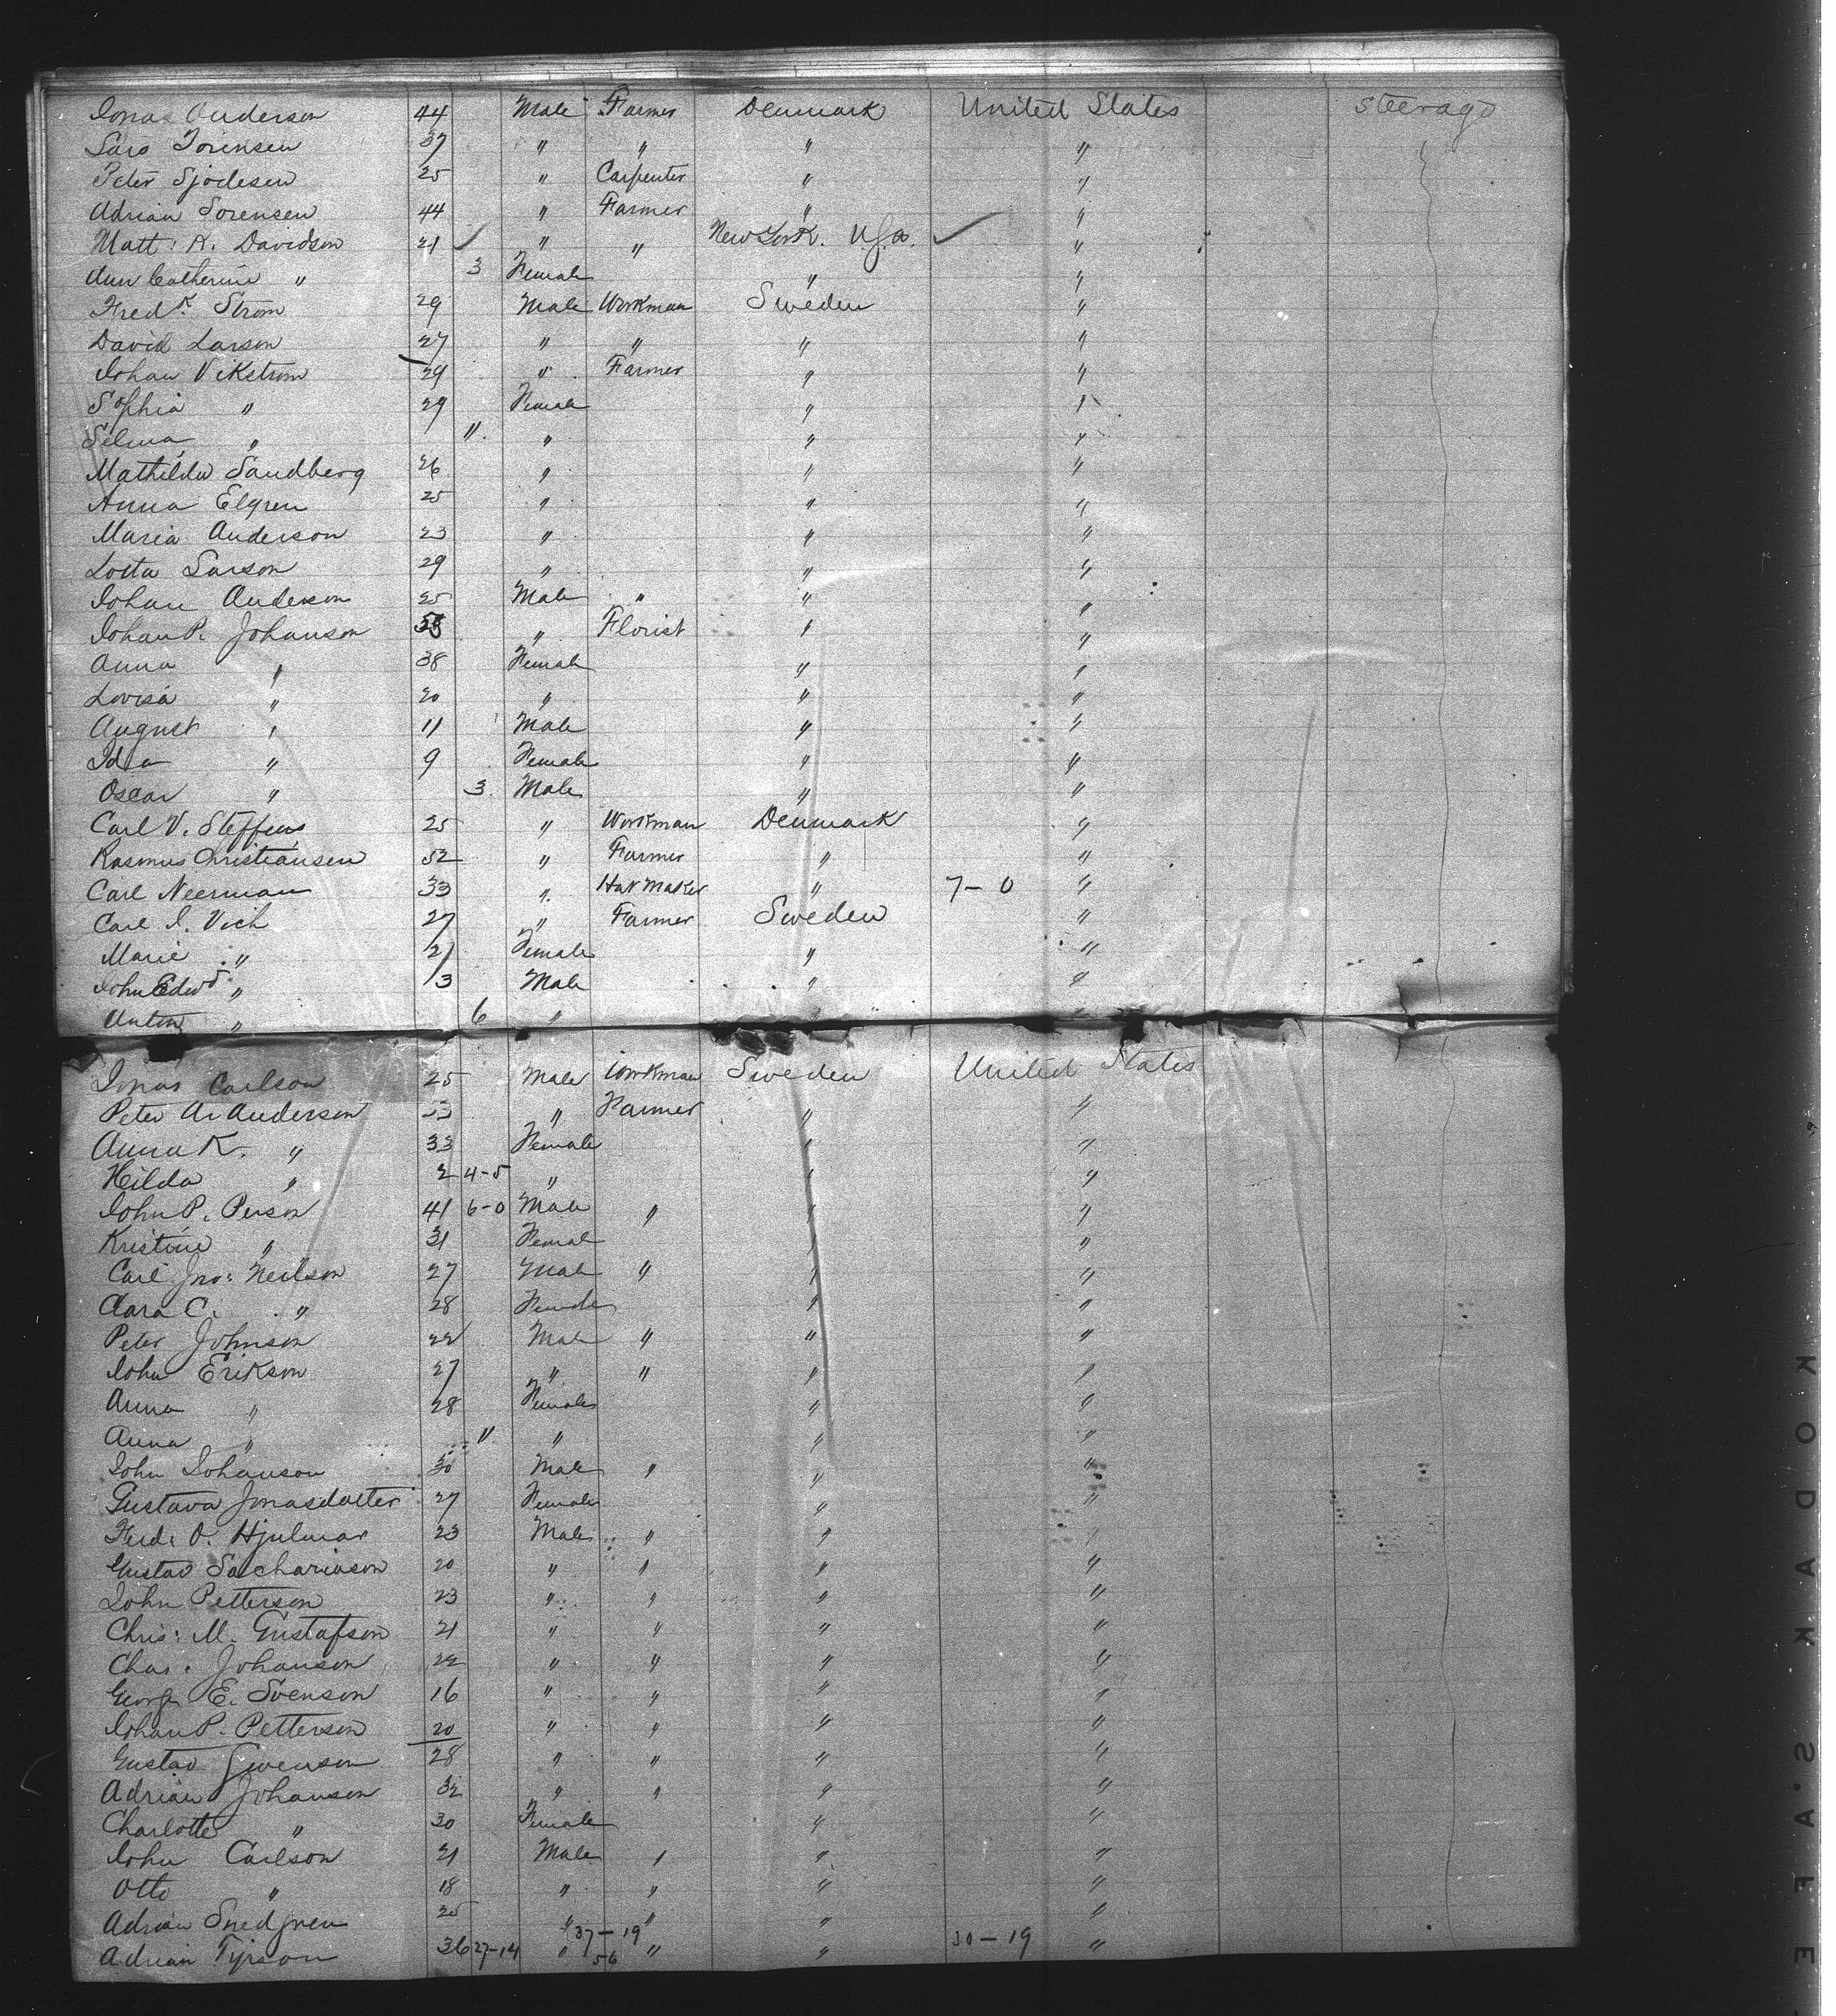 Jonas Anderson 44 Male Farmer Denmark United States Steerage
Lars Sorensen 37 " " " "
Peter Sjodesen 25 " Carpenter " "
Adrian Sorensen 44 " Farmer " "
Matt: K. Davidson 21 " " New York. U.S.A. "
Ann Catherine " 3 Female " "
Fredk Strom 29 Male Workman Sweden "
David Larson 27 " " " "
Johan Vikstrom 29 " Farmer " "
Sophia " 29 Female " "
Selma " 11 " " "
Mathilda Sandberg 26 " " "
Anna Elgren 25 " " "
Maria Anderson 23 " " "
Lotta Larson 29 " " "
Johan Anderson 25 Male " " "
Johan P. Johanson Florist " "
Anna " 38 Female " "
Lovisa " 20 " " "
August " 11 Male " "
Ida " 9 Female " "
Oscar " 3 Male " "
Carl V. Steffens 25 " Workman Denmark "
Rasmus Christiansen 52 " Farmer " "
Carl Neerman 33 " Hat Maker " 7-0 "
Carl I. Vich 27 " Farmer Sweden "
Marie " 21 Female " "
John Edwd " 3 Male " "
Anton " 6 " "
Jonas Carlson 25 Male Workman Sweden United States
Peter A. Anderson 33 " Farmer " "
Anna K. " 33 Female " "
Hilda " 2 4-5 " " "
John P. Person 41 6-0 Male " " "
Kristine " 31 Female " "
Carl Jno: Neilson 27 Male " " "
Clara C. " 28 Female " "
Peter Johnson 22 Male " " "
John Erikson 27 " " " "
Anna " 28 Female " "
Anna " 11 " " "
John Johanson 30 Male " " "
Gustava Jonasdatter 27 Female " "
Fred. O. Hjulmar 23 Male " " "
Gustav Sachariason 20 " " " "
John Petterson 23 " " " "
Chris: M. Gustafson 21 " " " "
Chas. Johanson 22 " " " "
George E. Svenson 16 " " " "
Johan P. Petterson 20 " " " "
Gustav Swenson 28 " " " "
Adrian Johanson 32 " " " "
Charlotte " 30 Female " "
John Carlson 21 Male " " "
Otto " 18 " " " "
Adrian Snedgren 25 " " " "
37-19
Adrian Tyrson 36 27-14 " 56 " " 30-19 "
KODAK SAFE